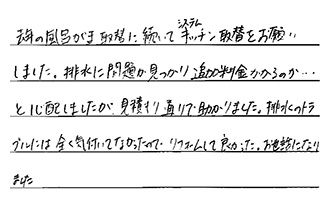 去年の風呂がま取替に続いてシステムキッチン取替をお願い
しました。排水に問題が見つかり追加料金かかるのか…
と心配しましたが、見積り通りで助かりました。排水のトラ
ブルには全く気付いてなかったので、リフォームして良かった。お世話になり
ました